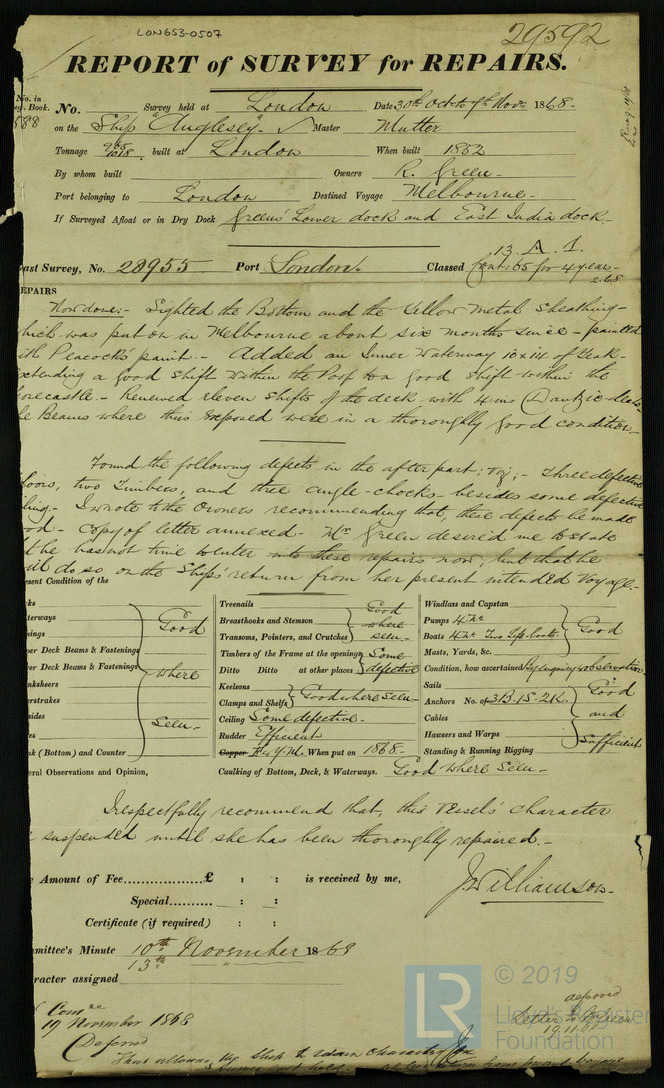 LON653-0507
29592
REPORT of SURVEY for REPAIRS.
No. in
Book. No. Survey held at London Date 30th Octr 9th Novr 1868-
588 on the Ship "Anglesey" Master Mutter
Tonnage 965/1018 built at London When built 1852
By whom built Owners R. Green-
Port belonging to London Destined Voyage Melbourne-
If Surveyed Afloat or in Dry Dock Green's Lower dock and East India dock-
ast Survey, No. 28955 Port London. Classed 13. A. 1.
Cont: 65 for 4 years-
EPAIRS
Now done:- Sighted the Bottom and the Yellow Metal Sheathing-
hich was put on in Melbourne about six months since - painted
ith Peacock's paint.- Added an Inner Waterway 10x14 of Teak-
xtending a good shift within the Poop to a good shift within the
orecastle- Renewed eleven shifts of the deck with 4 ins Dantzic deals-
e Beams where thus exposed were in a thoroughly good condition-
Found the following defects in the after part; viz;- Three defective
loors, two Timbers, and three angle-chocks- besides some defective
ling.- I wrote to the Owners recommending that, these defects be made
od- Copy of letter annexed- Mr Green desired me to state
the has not time to enter into these repairs now, but that he
ill do so on the Ship's return from her present intended Voyage-
esent Condition of the
cks
terways
nings
per Deck Beams & Fastenings
wer Deck Beams & Fastenings
nksheers
erstrakes
sides
es
nk (Bottom) and Counter
Good
where
seen-
Treenails
Breasthooks and Stemson
Transoms, Pointers, and Crutches
Good
where
seen-
Timbers of the Frame at the openings
Ditto Ditto at other places
Some
defective
Keelsons
Clamps and Shelfs
Good where seen-
Ceiling Some defective-
Rudder Efficient
Copper F & Y.M. When put on 1868-
Caulking of Bottom, Deck, & Waterways. Good where seen-
Windlass and Capstan
Pumps 4 No
Boats 4 No Two Life boats
Masts, Yards, &c.
Good
Condition, how ascertained By enquiry & observation
Sails
Anchors No. of 3B.1S.2K.
Cables
Hawsers and Warps
Standing & Running Rigging
Good
and
Sufficient
eral Observations and Opinion,
I respectfully recommend that, this Vessel's character
suspended until she has been thoroughly repaired.-
e Amount of Fee................£ : : is received by me,
Special.......... : :
Certificate (if required) : :
J Williamson-
mmittee's Minute 10th November 1868
13th " "
racter assigned
19 November 1868
Deferred
deferred
Letter to Green
19.11.68
LR
© 2019
Lloyd's Register
Foundation